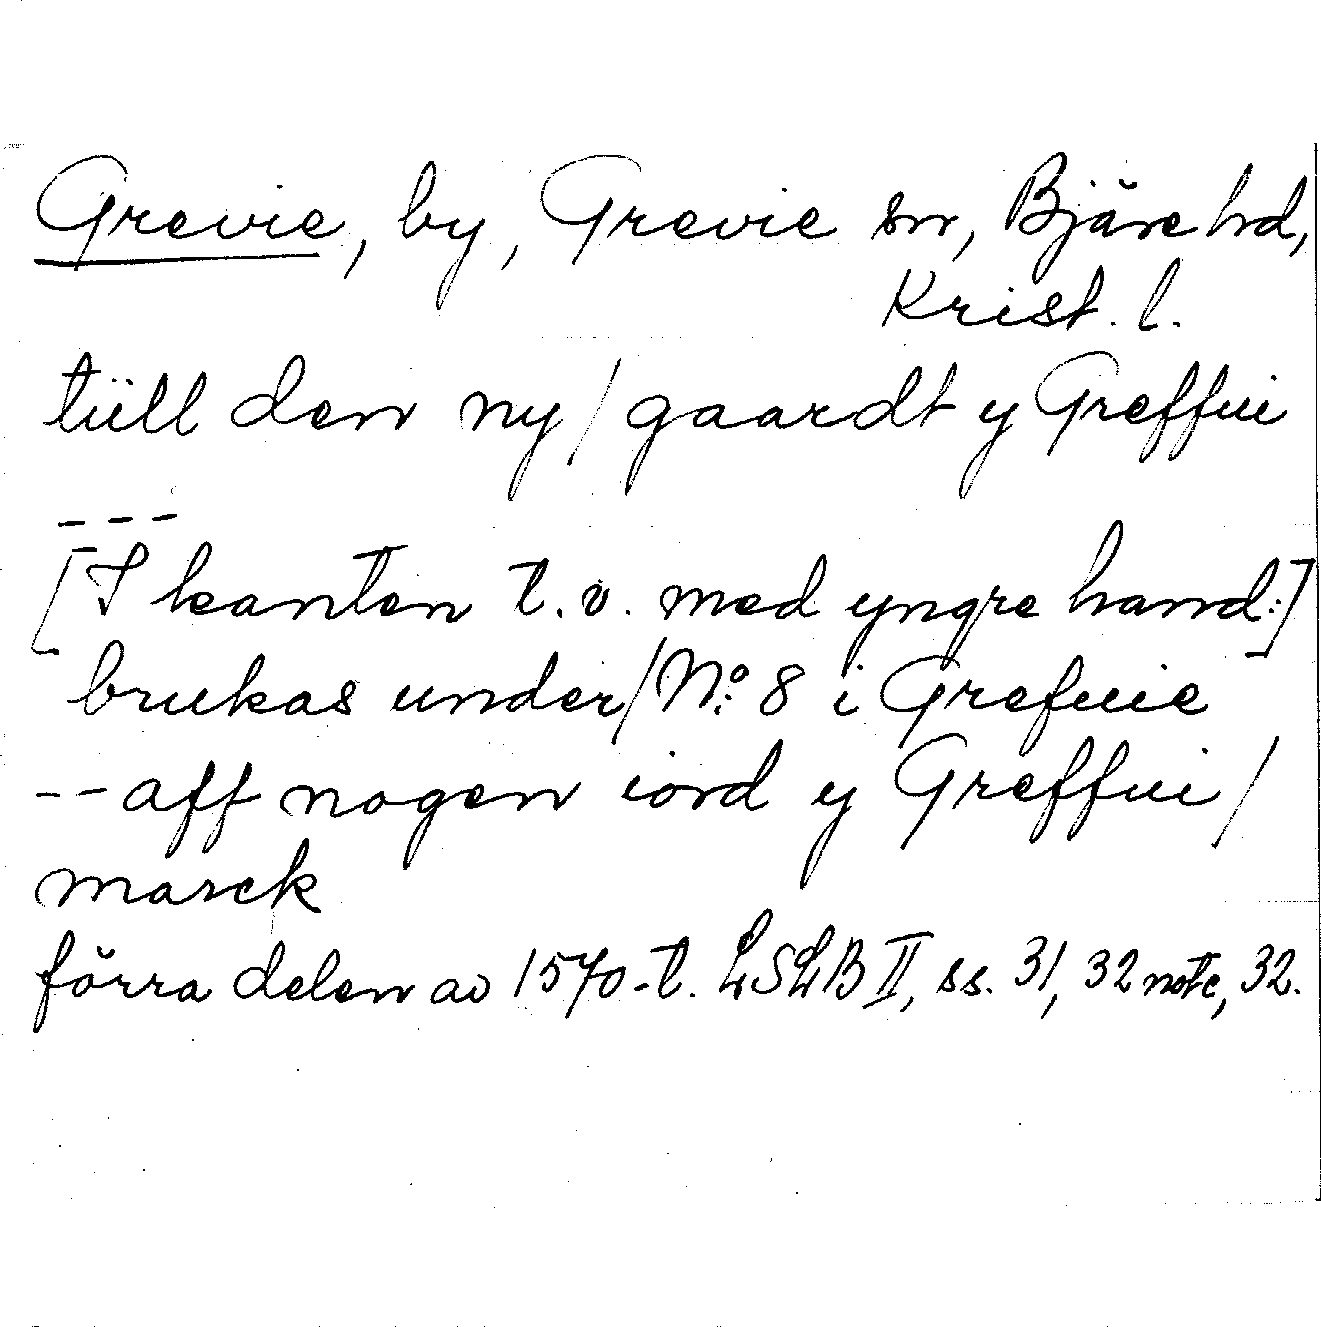 Grevie, by, Grevie sn, Bjäre hd,
Krist. l.
tüll den ny / gaardt y Greffui
---
[I kanten t.v. med yngre hand:]
brukas under / No: 8 i Grefuie
-- aff nogen iord y Greffui /
marck
förra delen av 1570-t. LSLB II, ss. 31, 32 note, 32.